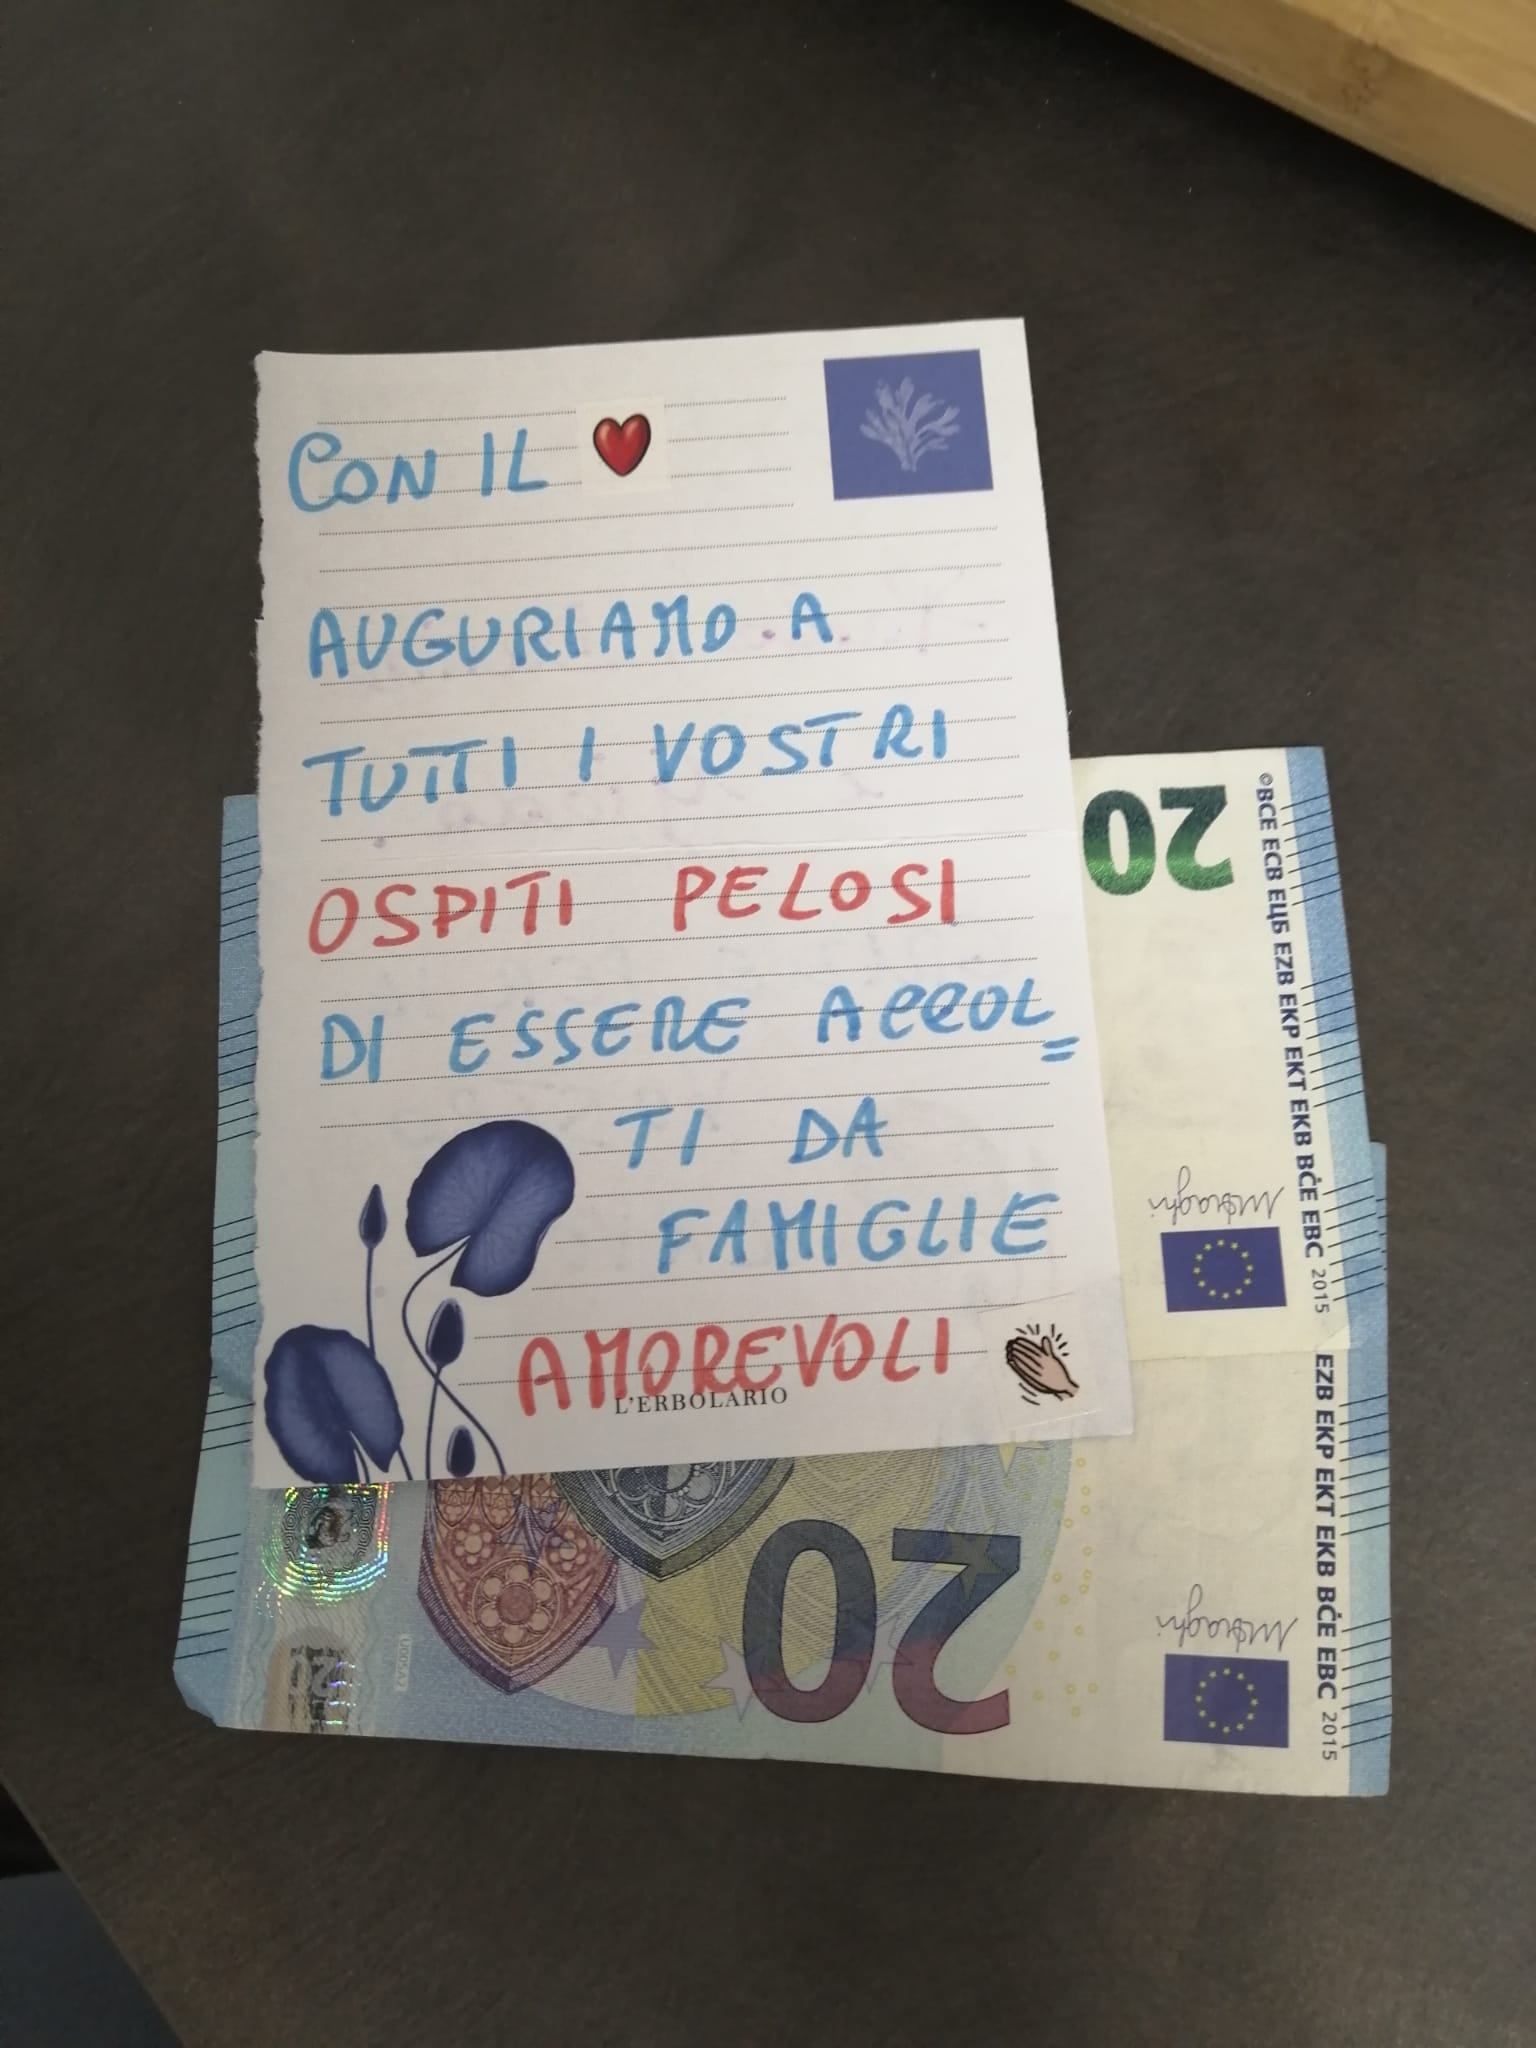 CON IL
AUGURIAMO A
TUTTI I VOSTRI
OSPITI PELOSI
DI ESSERE ACCOL=
TI DA
FAMIGLIE
AMOREVOLI
L'ERBOLARIO
20
©BCE ECB ЕЦБ EZB EKP EKT EKB BĊE EBC 2015
EZB EKP EKT EKB BĊE EBC 2015
20